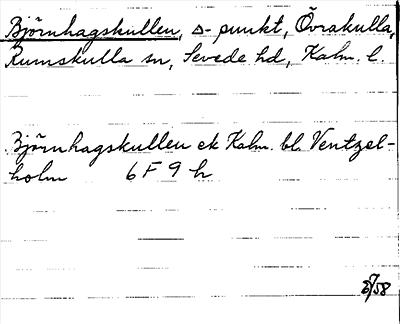 Björnhagskullen, △- punkt, Övrakulla,
Rumskulla sn, Sevede hd, Kalm. l.
Björnhagskullen ek Kalm. bl. Ventzel-
holm 6 F 9 h